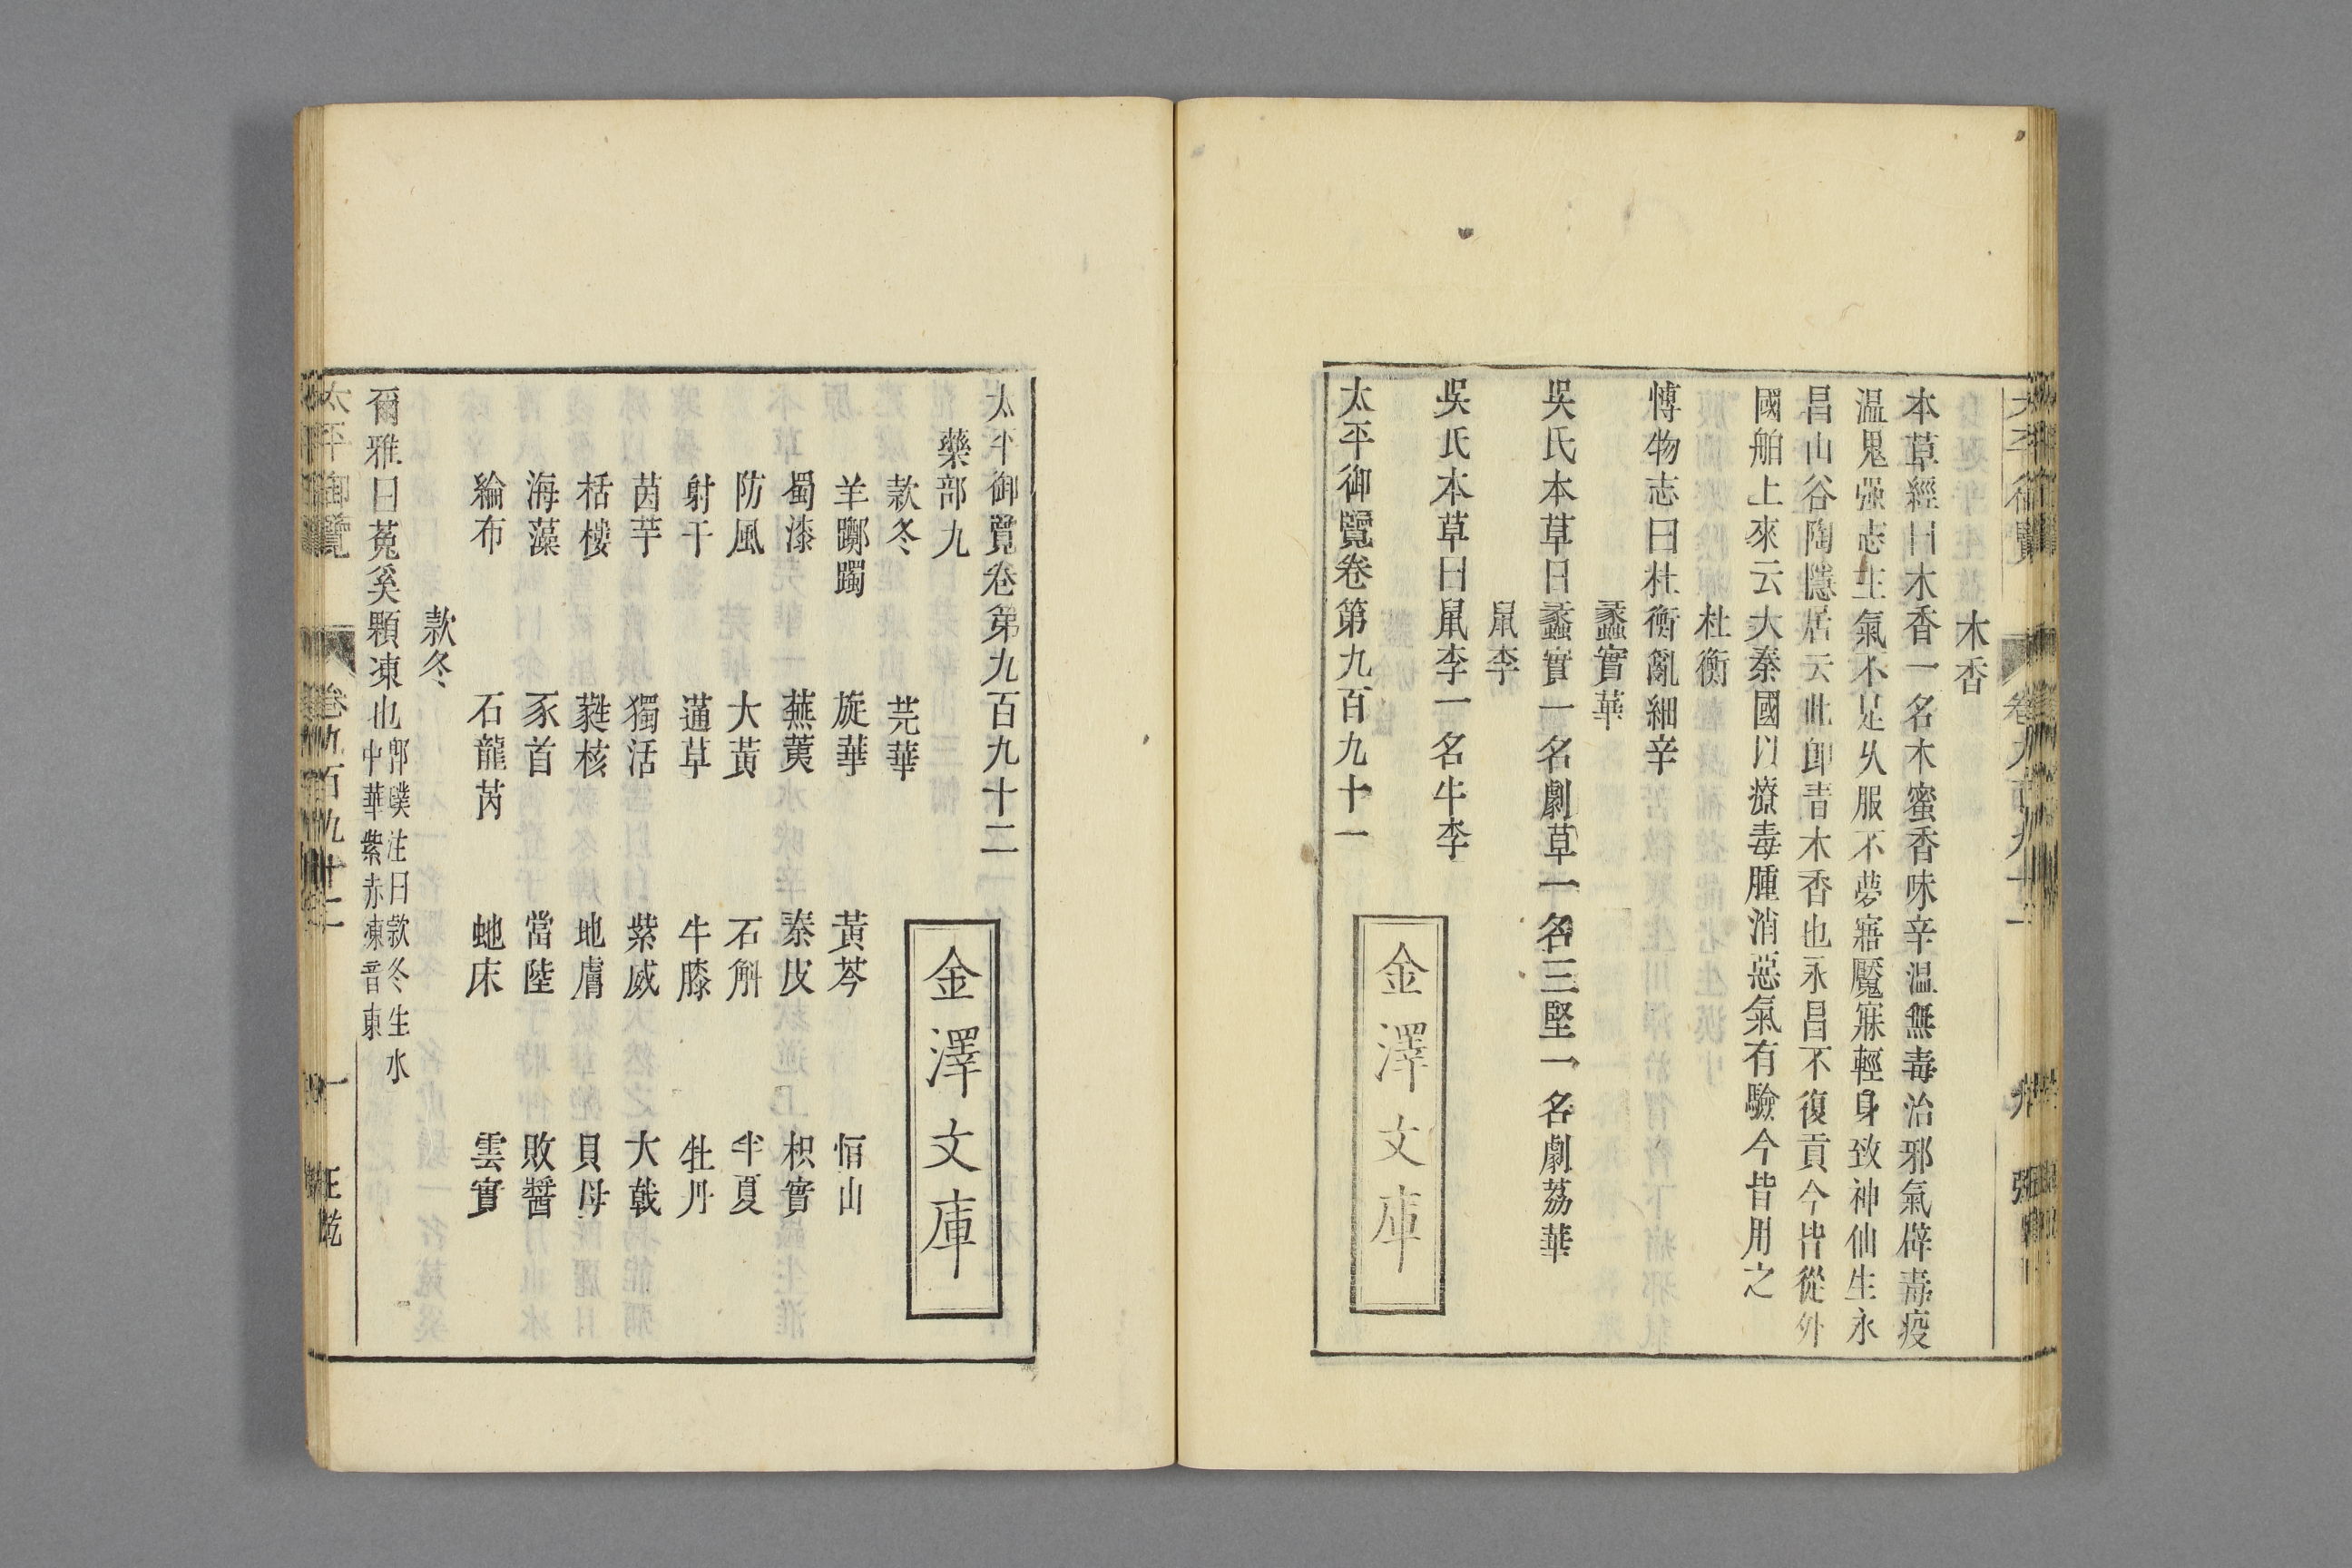 木香
本草經曰木香一名木蜜香味辛温無毒治邪氣辟毒疫
温鬼强志主氣不足乆服不夢寤魘寐輕身致神仙生永
昌山谷陶隱居云此即青木香也永昌不復貢今皆從外
國舶上來云大秦國以療毒腫消惡氣有驗今皆用之
杜衡
博物志曰杜衡亂細辛
蠡實華
吳氏本草曰蠡實一名劇草一名三堅一名劇荔華
鼠李
吳氏本草曰鼠李一名牛李
太平御覽卷第九百九十一
金澤文庫
太平御覽卷第九百九十二
藥部九
款冬 芫華
羊躑躅 旋華 黃芩 恒山
蜀漆 蕪荑 秦皮 枳實
防風 大黃 石斛 半夏
射干 蓪草 牛膝 牡丹
茵芋 獨活 紫威 大戟
栝樓 蕤核 地膚 貝母
海藻 豕首 當陸 敗醬
綸布 石龍芮 虵床 雲實
金澤文庫
款冬
爾雅曰菟奚顆凍也郭璞注曰款冬生水
中華紫赤凍音東
太平御覽 卷九百九十二 一 王乾